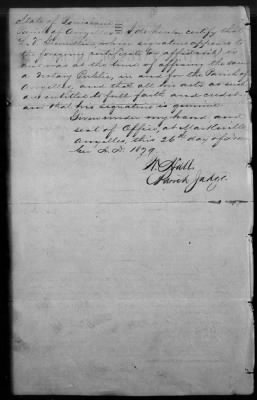 State of Louisiana
Parish of Avoyelles I do hereby certify that
whose signature appears to
the foregoing certificate (or affidavit) is
and was at the time of affixing the same
a Notary Public, in and for the Parish of
Avoyelles, and that all his acts as such
are entitled to full faith and credit
and that his signature is genuine.
Given under my hand and
seal of Office, at Marksville
Avoyelles, this 26th day of
A.D. 1879
Parish Judge.